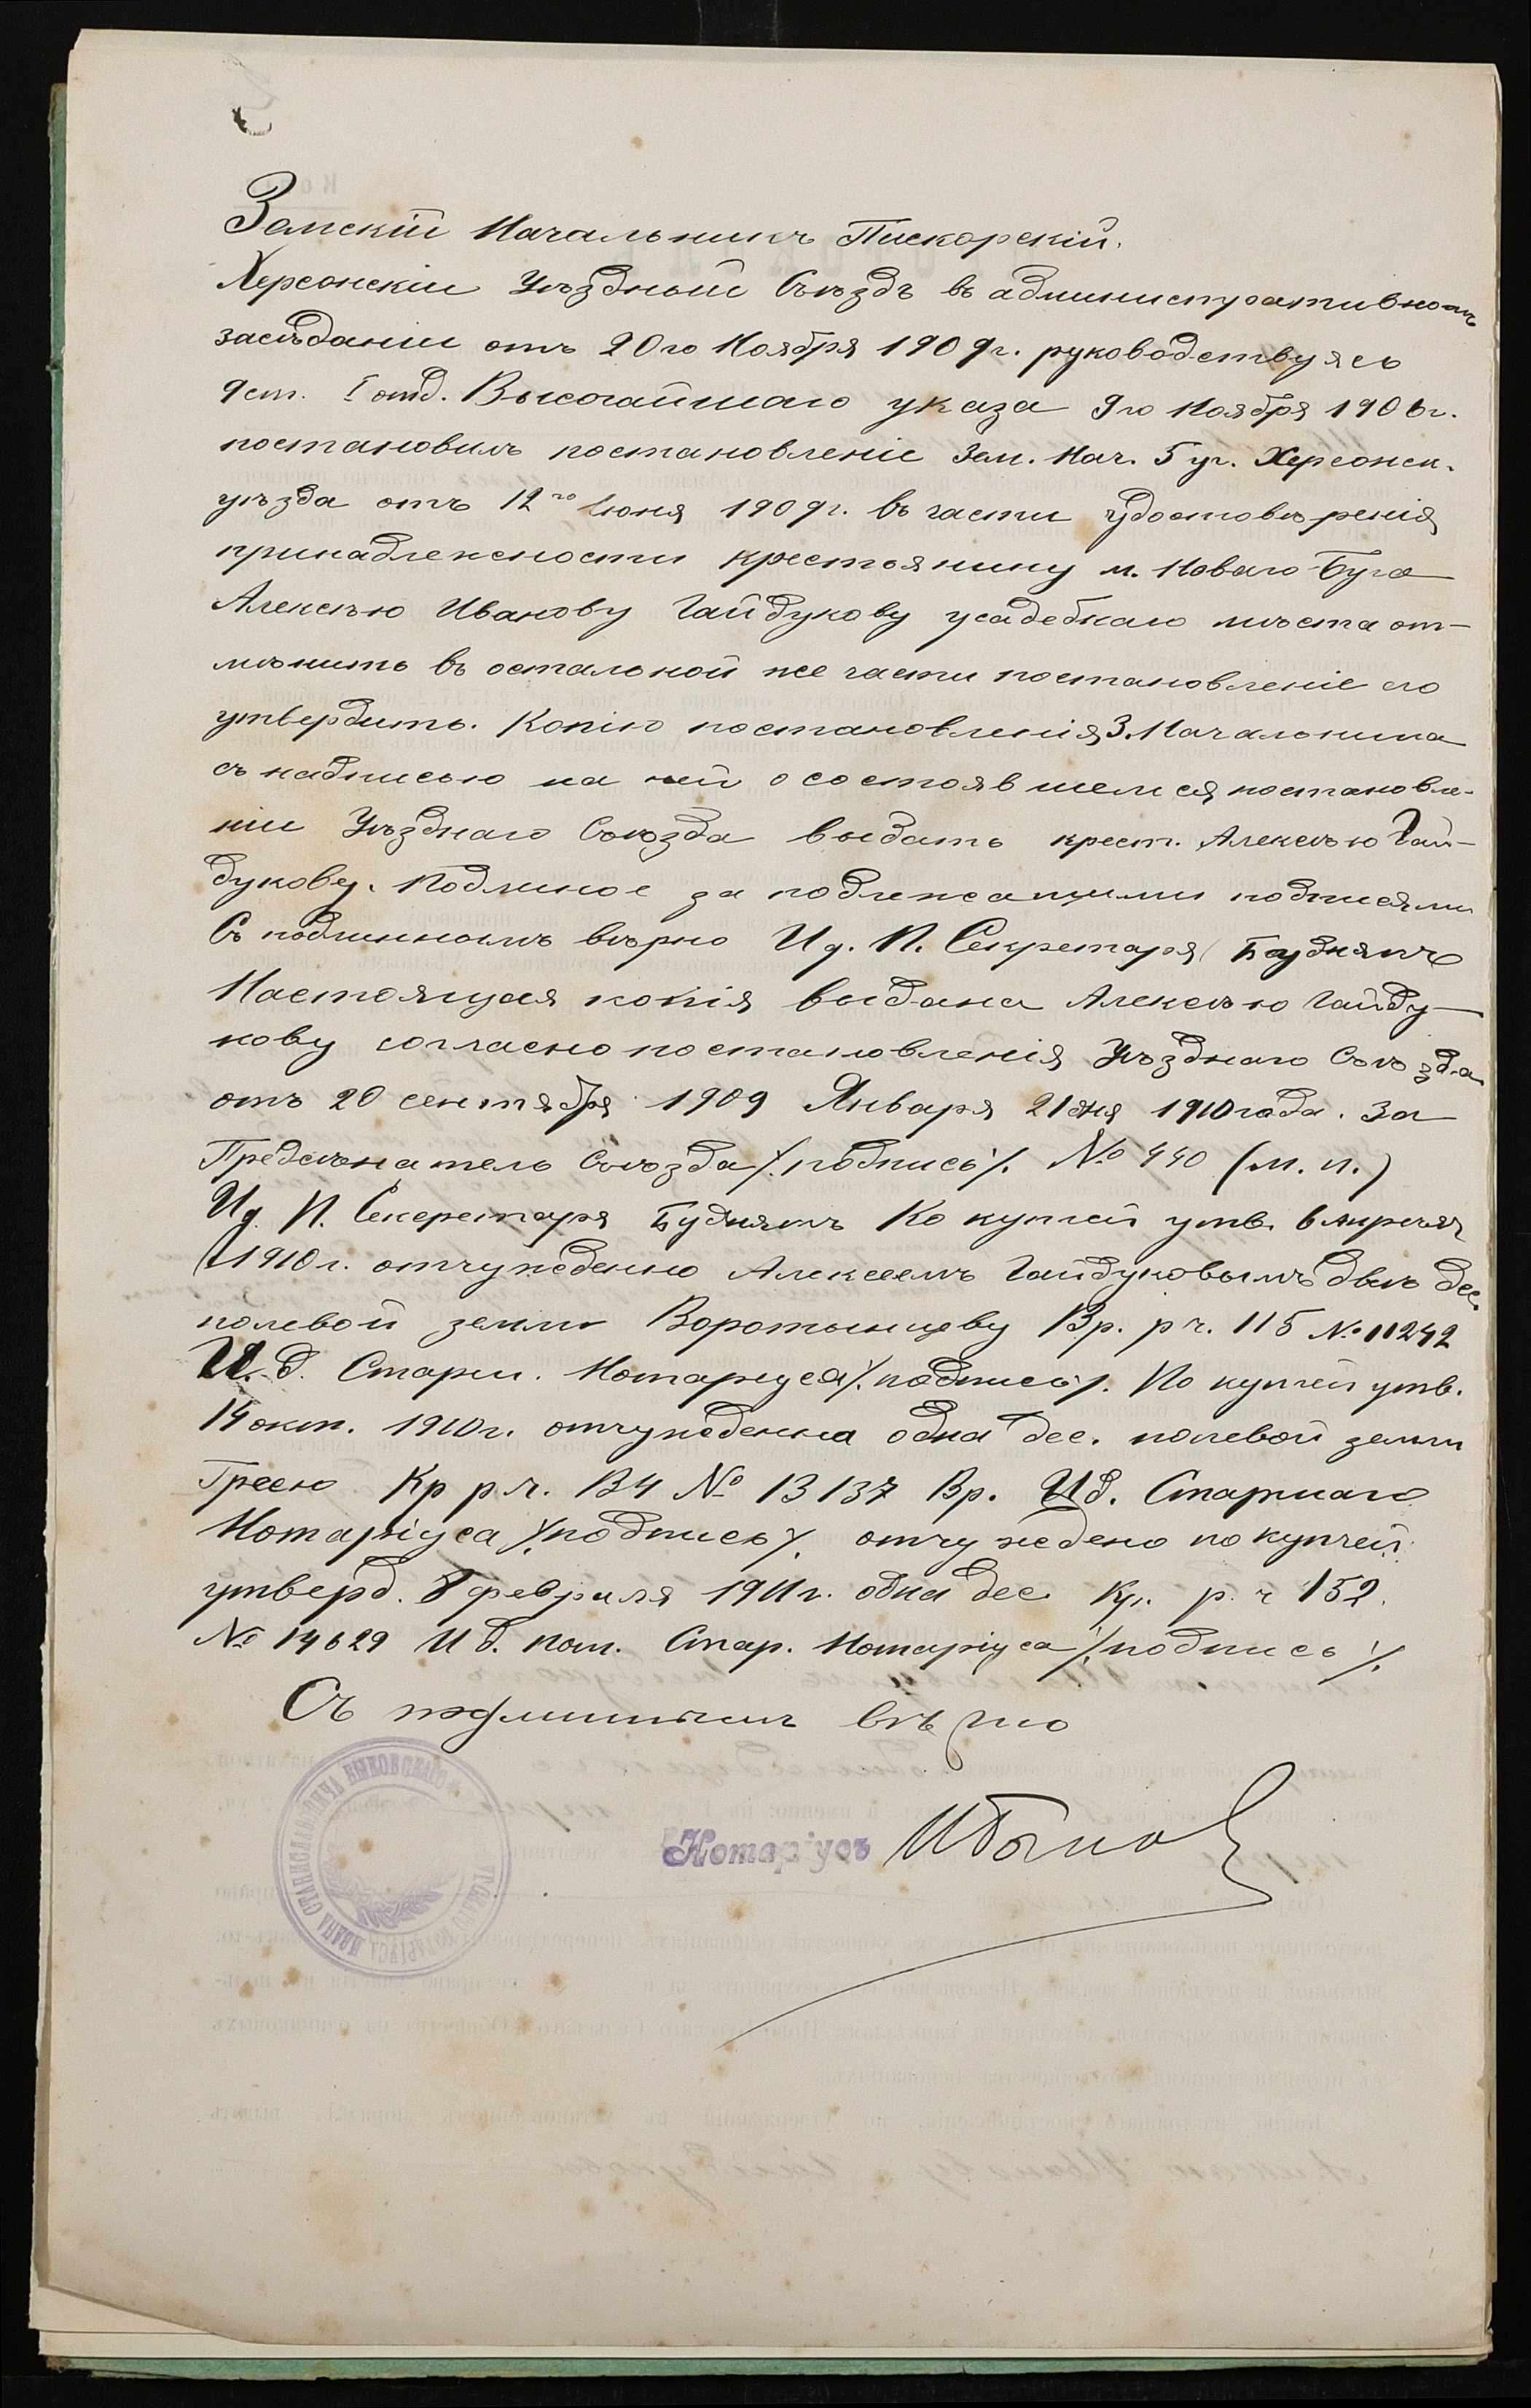 Земскій Начальникъ Пискорскій.
Херсонскій Уѣздный Съѣздъ въ административномъ
засѣданіи отъ 20го Ноября 1909г. руководствуясь
9 ст. I отд. Высочайшаго указа 9го Ноября 1906г.
постановилъ постановленіе Зем. Нач. 5 уч. Херсонск.
уѣзда отъ 12го Іюня 1909г. въ части удостовѣренія
принадлежности крестьянину м. Новаго-Буга
Алексѣю Иванову Гайдукову усадебнаго мѣста от-
мѣнить въ остальной же части постановленіе его
утвердить. Копію постановленія З. Начальника
съ надписью на ней о состоявшемся постановле-
ніи Уѣзднаго Съѣзда выдать крест. Алексѣю Гай-
дукову. Подлиное за подлежащими подписями
Съ подлиннымъ вѣрно И д. П. Секретаря Буднякъ
Настоящая копія выдана Алексѣю Гайду-
кову согласно постановленія Уѣзднаго Съѣзда
отъ 20 сентября 1909 Января 21 дня 1910 года. За
Предсѣдатель Съѣзда /.подпись/. № 440 (м. п.)
И д. П. Секеретаря Буднякъ По купчей утв. 6 апрѣля
1910 г. отчужденно Алексеемъ Гайдуковымъ двѣ дес.
полевой земли Воротынцеву Вр. р ч. 115 № 11242
И. д. Старш. Нотаріуса /.подпись/. По купчей утв.
14 окт. 1910г. отчужденна одна дес. полевой земли
Гресю Кр р ч. 134 № 13137 Вр. И д. Старшаго
Нотаріуса /.подпись/. отчуждено по купчей
утверд. 8 февраля 1911г. одна дес. Кр. р. ч 152.
№ 14629 И д. пом. Стар. Нотаріуса /.подпись/.
Съ подлиннымъ вѣрно
Нотаріусъ